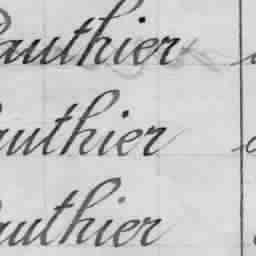 Gauthier
Gauthier
Gauthier